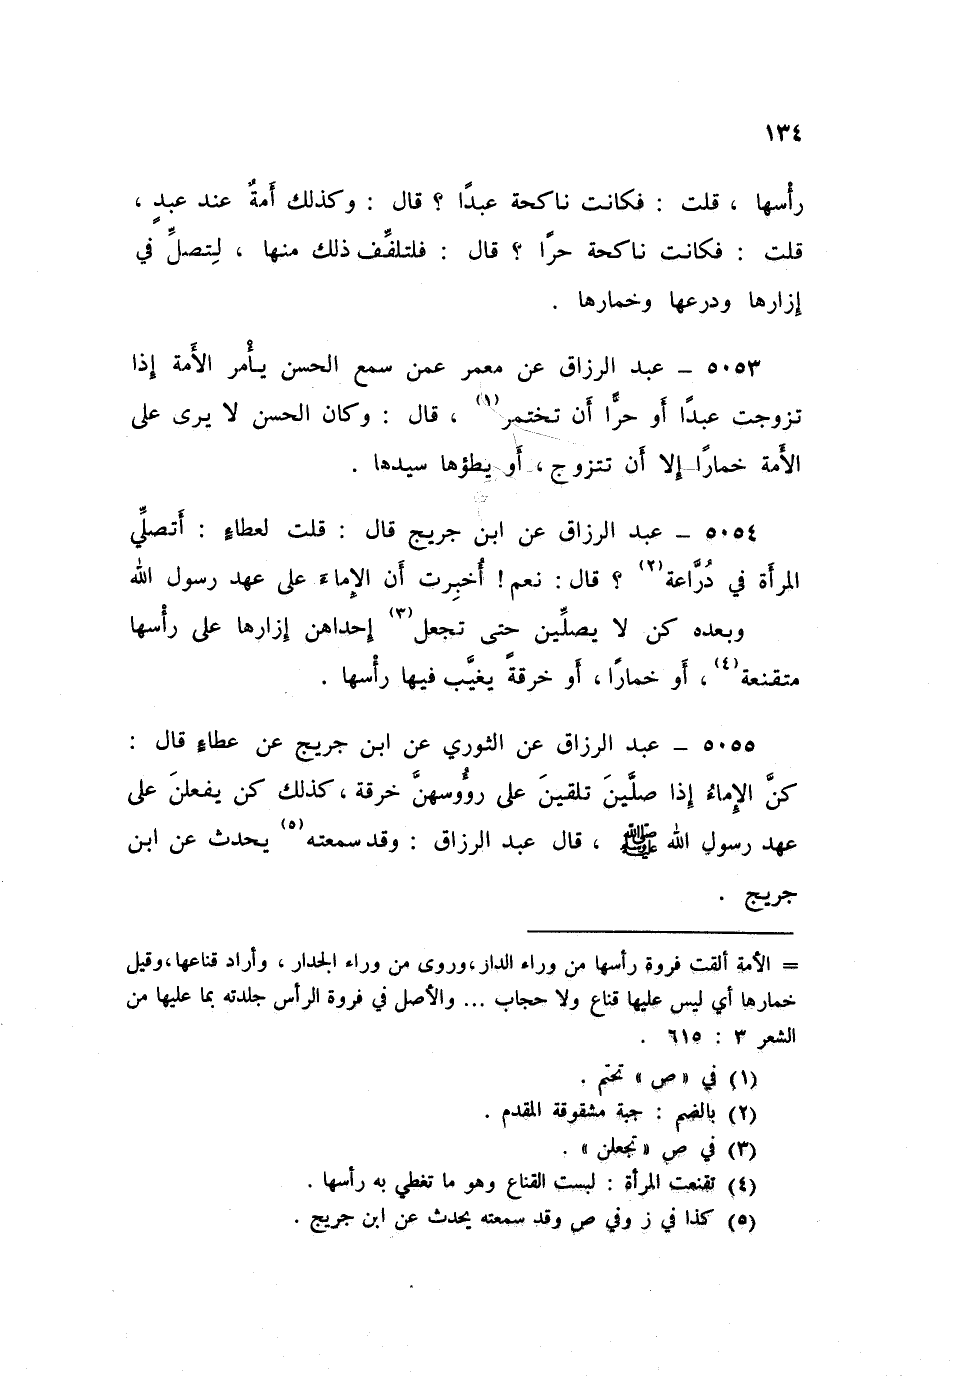 ١٣٤
رأْسها ، قلت : فكانت ناكحة عبدًا ؟ قال : وكذلك أَمةٌ عند عبدٍ ،
قلت : فكانت ناكحة حرًّا ؟ قال : فلتلفِّف ذلك منها ، لِتصلِّ في
إزارها ودرعها وخمارها .
٥٠٥٣ – عبد الرزاق عن معمر عمن سمع الحسن يأْمر الأَمة إذا
تزوجت عبدًا أَو حرًّا أَن تختمر(١) ، قال : وكان الحسن لا يرى على
الأَمة خمارًا إلا أَن تتزوج ، أَو يطؤها سيدها .
٥٠٥٤ – عبد الرزاق عن ابن جريج قال : قلت لعطاءٍ : أَتصلِّي
المرأَة في دُرَّاعة(٢) ؟ قال : نعم ! أُخبِرت أَن الإِماءَ على عهد رسول الله
وبعده كن لا يصلِّين حتى تجعل(٣) إحداهن إزارها على رأْسها
متقنعة(٤) ، أَو خمارًا ، أَو خرقةً يغيَّب فيها رأْسها .
٥٠٥٥ – عبد الرزاق عن الثوري عن ابن جريج عن عطاءٍ قال :
كنَّ الإِماءُ إذا صلَّينَ تلقينَ على رؤُوسهنَّ خرقة ، كذلك كن يفعلنَ على
عهد رسولِ الله ﷺ ، قال عبد الرزاق : وقد سمعته(٥) يحدث عن ابن
جريج .
= الأمة ألقت فروة رأسها من وراء الدار ، وروى من وراء الجدار ، وأراد قناعها ، وقيل
خمارها أي ليس عليها قناع ولا حجاب ... والأصل في فروة الرأس جلدته بما عليها من
الشعر ٣ : ٦١٥ .
(١) في «ص» تختم .
(٢) بالضم : جبة مشقوقة المقدم .
(٣) في ص «تجعلن» .
(٤) تقنعت المرأة : لبست القناع وهو ما تغطي به رأسها .
(٥) كذا في ز وفي ص وقد سمعته يحدث عن ابن جريج .